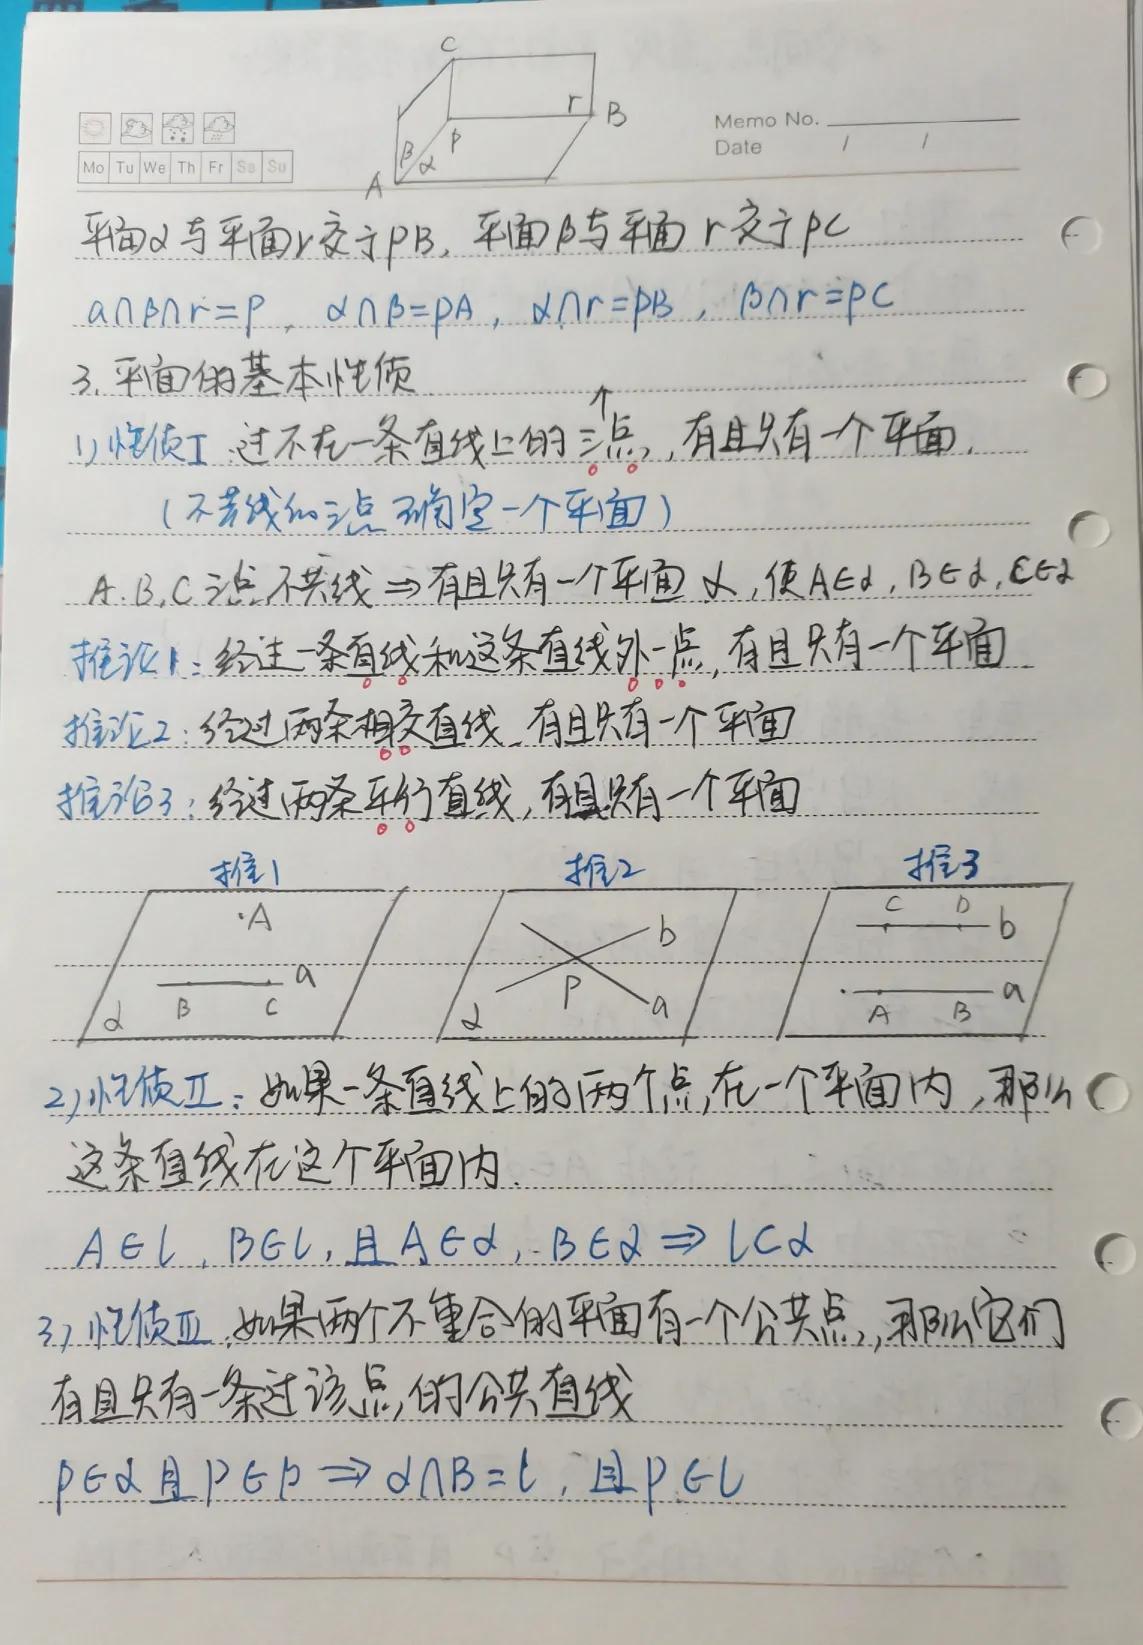 C
r
B
β
α
P
A
Memo No.
Date / /
Mo Tu We Th Fr Sa Su
平面α与平面r交于PB, 平面β与平面r交于PC
a∩β∩r=P, α∩β=PA, α∩r=PB, β∩r=PC
3. 平面的基本性质
↑
1) 性质Ⅰ 过不在一条直线上的三点, 有且只有一个平面.
(不共线的三点确定一个平面)
A.B,C三点不共线⇒有且只有一个平面α, 使A∈α, B∈α, C∈α
推论1: 经过一条直线和这条直线外一点, 有且只有一个平面
推论2: 经过两条相交直线, 有且只有一个平面
推论3: 经过两条平行直线, 有且只有一个平面
推1 推2 推3
·A
a
B C
α
b
P
a
α
C D
b
a
A B
2) 性质Ⅱ: 如果一条直线上的两个点在一个平面内, 那么
这条直线在这个平面内.
A∈l, B∈l, 且A∈α, B∈α⇒l⊂α
3) 性质Ⅲ. 如果两个不重合的平面有一个公共点, 那么它们
有且只有一条过该点的公共直线
P∈α且P∈β⇒α∩β=l, 且P∈l